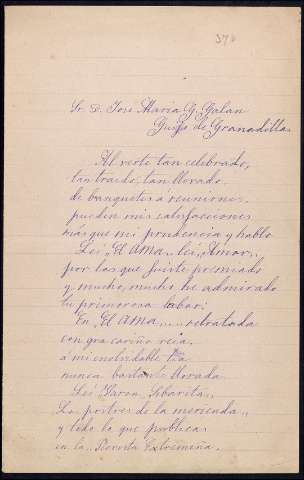 370
Sr. D. José María G. Galan
Guijo de Granadilla
Al verte tan celebrado,
tan traido, tan llevado
de banquetes á reuniones,
pueden mis satisfacciones
más que mi prudencia y hablo
Leí „El Ama„ leí „Amor„
por las que fuiste premiado
y mucho, mucho he admirado
tu primorosa labor;
En „El Ama„ retratada
con gran cariño veia
á mi inolvidable tia
nunca bastante llorada
Leí „Varon
La postres de la merienda„
y todo lo que publicas
en la „Revista Extremeña.